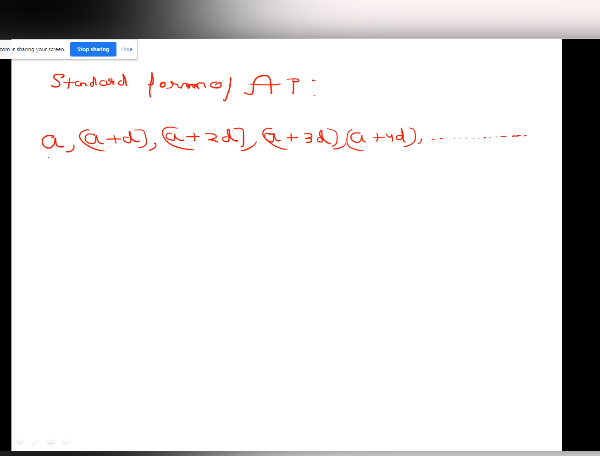 com is sharing your screen. Stop sharing Hide
Standard form of AP:
a, (a+d), (a+2d), (a+3d), (a+4d), ..............